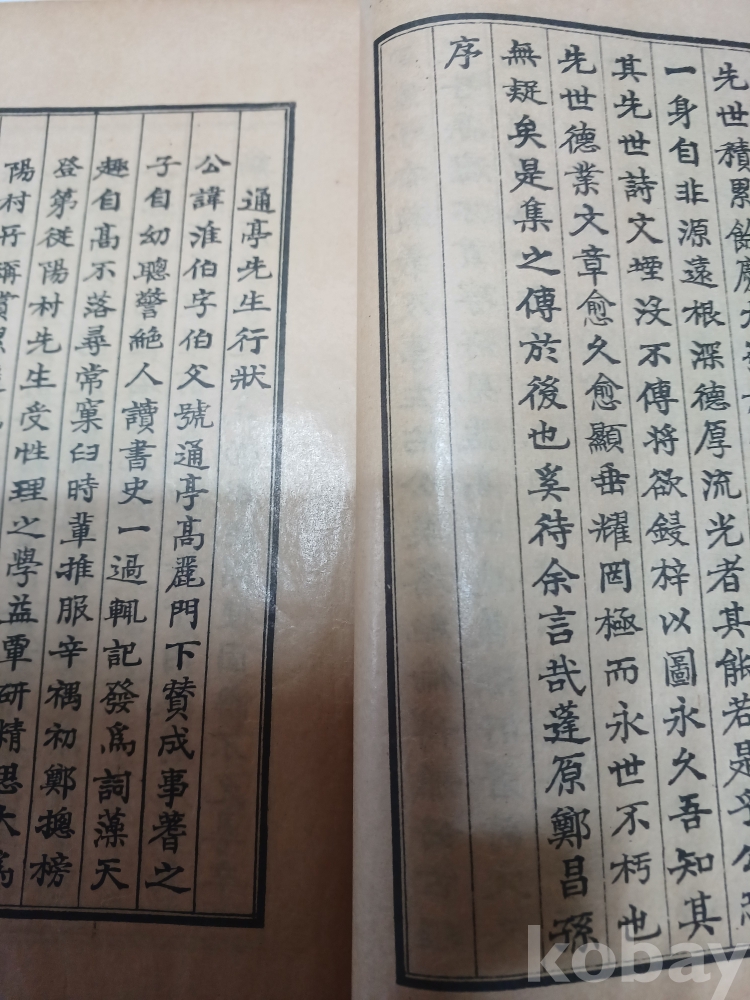 先世積累餘慶
一身自非源遠根深德厚流光者其能若是乎公
其先世詩文堙没不傳將欲鋟梓以圖永久吾知其
先世德業文章愈久愈顯垂耀罔極而永世不朽也
無疑矣是集之傳於後也奚待余言哉蓬原鄭昌孫
序
通亭先生行狀
公諱淮伯字伯父號通亭高麗門下贊成事蓍之
子自幼聰警絶人讀書史一過輒記發爲詞藻天
趣自高不落尋常窠臼時輩推服辛禑初鄭摠榜
登第從陽村先生受性理之學益覃研精思大爲
陽村所稱賞
kobay